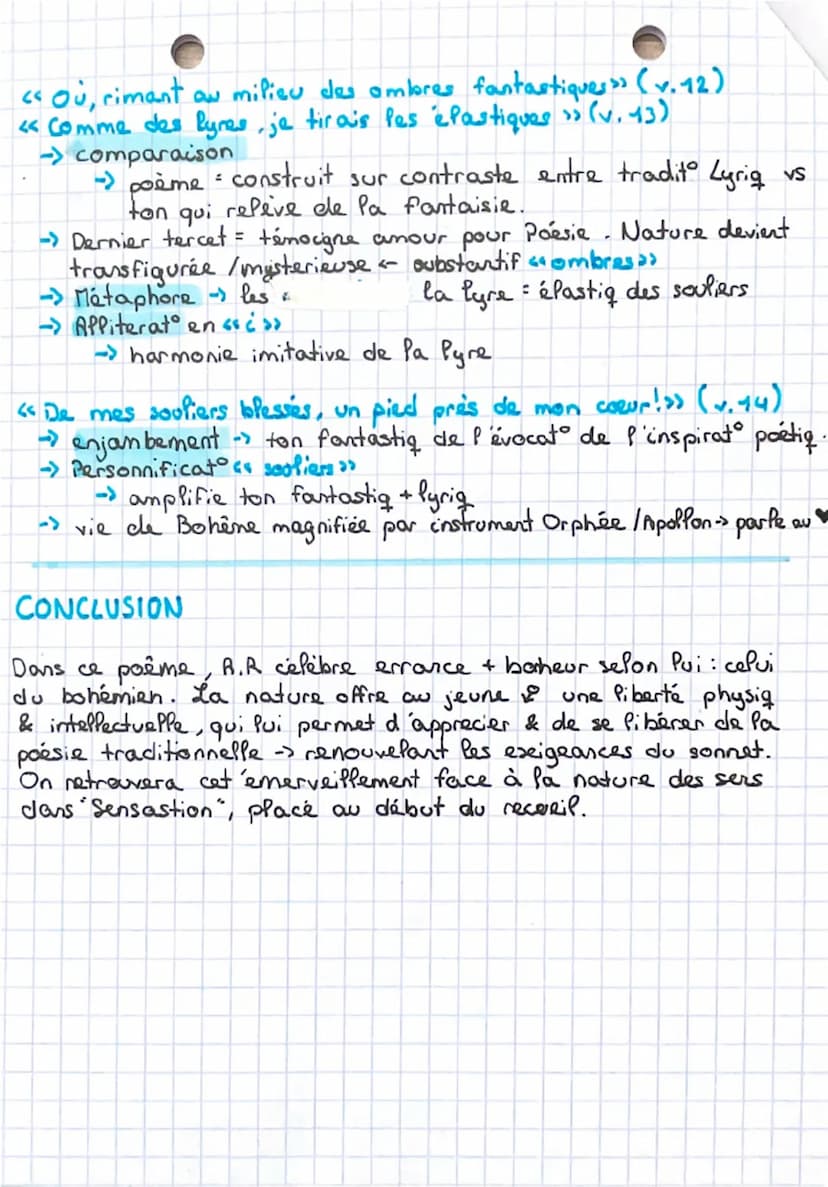 « Où, rimant au milieu des ombres fantastiques » (v.12)
« Comme des lyres, je tirais les élastiques » (v.13)
-> comparaison
-> poème = construit sur contraste entre tradit° Lyriq vs
ton qui relève de la fantaisie.
-> Dernier tercet = témoigne amour pour Poésie. Nature devient
transfigurée / mysterieuse <- substantif « ombres »
-> Métaphore -> les la lyre = élastiq des souliers
-> Alliterat° en « i »
-> harmonie imitative de la lyre
« De mes souliers blessés, un pied près de mon coeur! » (v.14)
-> enjambement -> ton fantastiq de l'évocat° de l'inspirat° poétiq.
-> Personnificat° « souliers »
-> amplifie ton fantastiq + lyriq
-> vie de Bohême magnifiée par instrument Orphée / Apollon -> parle au ♥
CONCLUSION
Dans ce poème, A.R célèbre errance + bonheur selon lui : celui
du bohémien. La nature offre au jeune une liberté physiq
& intellectuelle, qui lui permet d'apprecier & de se libérer de la
poésie traditionnelle -> renouvelant les exigeances du sonnet.
On retrouvera cet émerveillement face à la nature des sens
dans "Sensastion", placé au début du recueil.